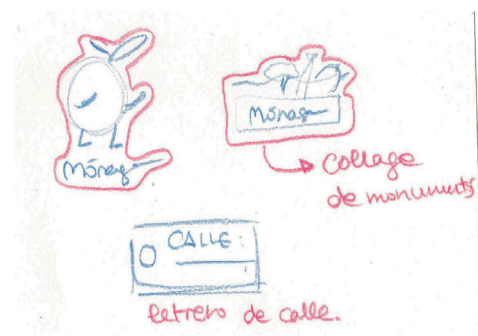 Mónaco
Mónaco
Collage
de monuments
CALLE:
letrero de calle.